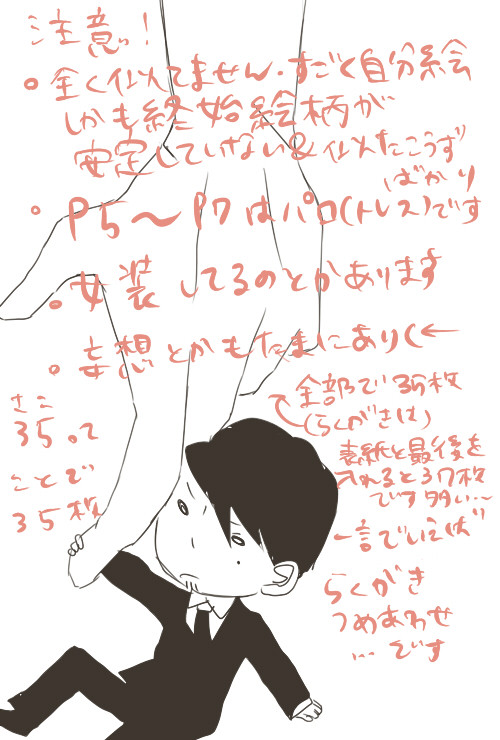 注意っ!
全く似てません。すごく自分絵
しかも終始絵柄が
安定していない&似たこうず
ばかり
P5〜P7はパロ(トレス)です
女装してるのとかあります
妄想とかもたまにあり(←
全部で35枚
(らくがきは)
きこ
35。って
ことで
35枚
表紙と最後を
入れると37枚
です多い…
一言でいえば
らくがき
つめあわせ
…です